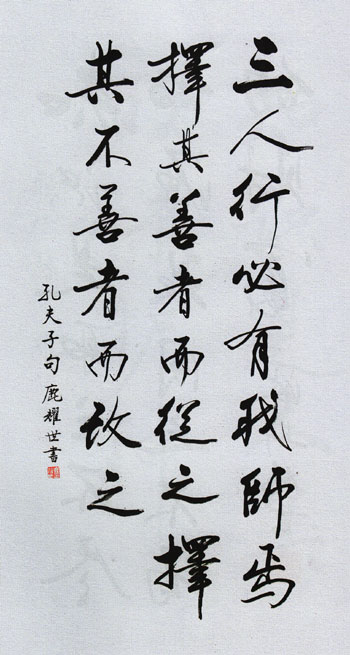 三人行必有我師焉
擇其善者而從之擇
其不善者而改之
孔夫子句鹿耀世書